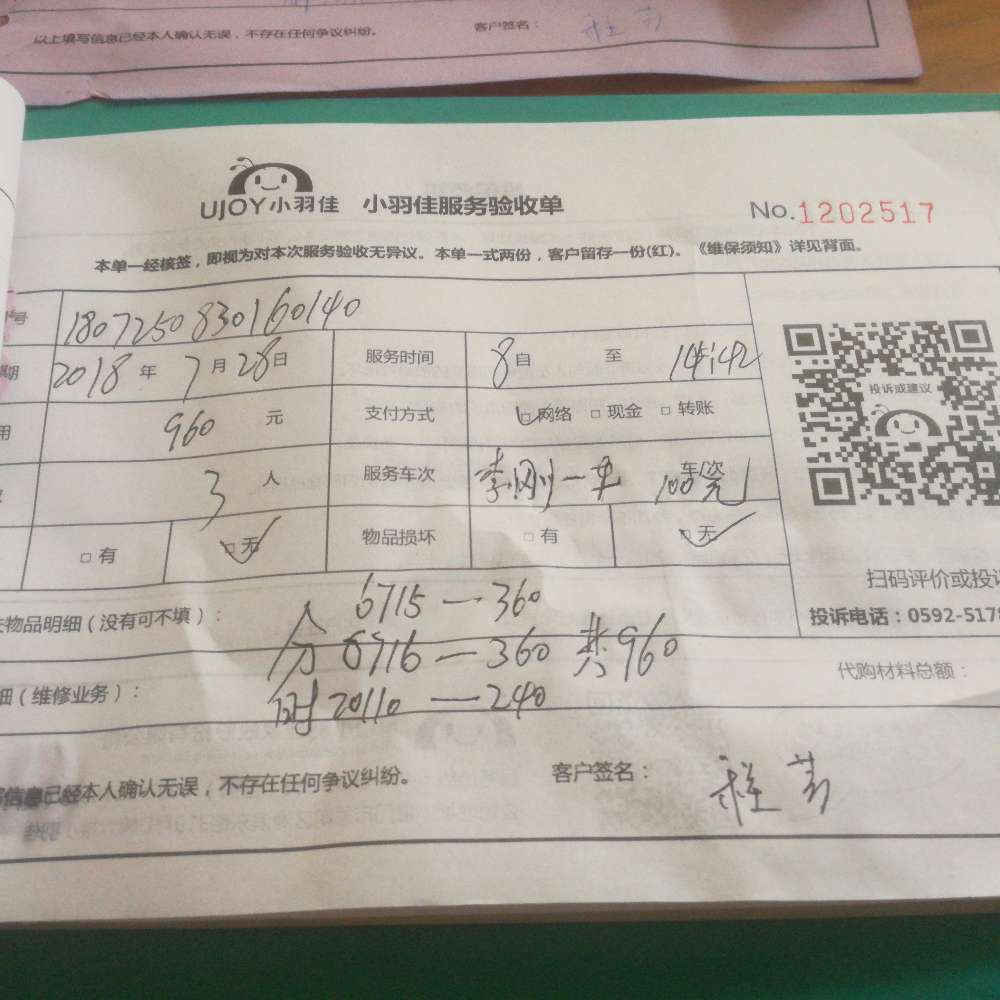 以上填写信息已经本人确认无误，不存在任何争议纠纷。 客户签名：
UJOY小羽佳 小羽佳服务验收单
No.1202517
本单一经核签，即视为对本次服务验收无异议。本单一式两份，客户留存一份(红)。《维保须知》详见背面。
号 1807250830160140
期 2018年 7月28日 服务时间 8自 至 14:42
用 960 元 支付方式 □网络 □现金 □转账
3 人 服务车次 李刚一车 100元 车/次
□有 □无 物品损坏 □有 □无
投诉或建议
扫码评价或投诉
投诉电话：0592-5178
物品明细（没有可不填）： 6715 — 360
分 6716 — 360 共960
代购材料总额：
细（维修业务）： 时 20110 — 240
信息已经本人确认无误，不存在任何争议纠纷。 客户签名：